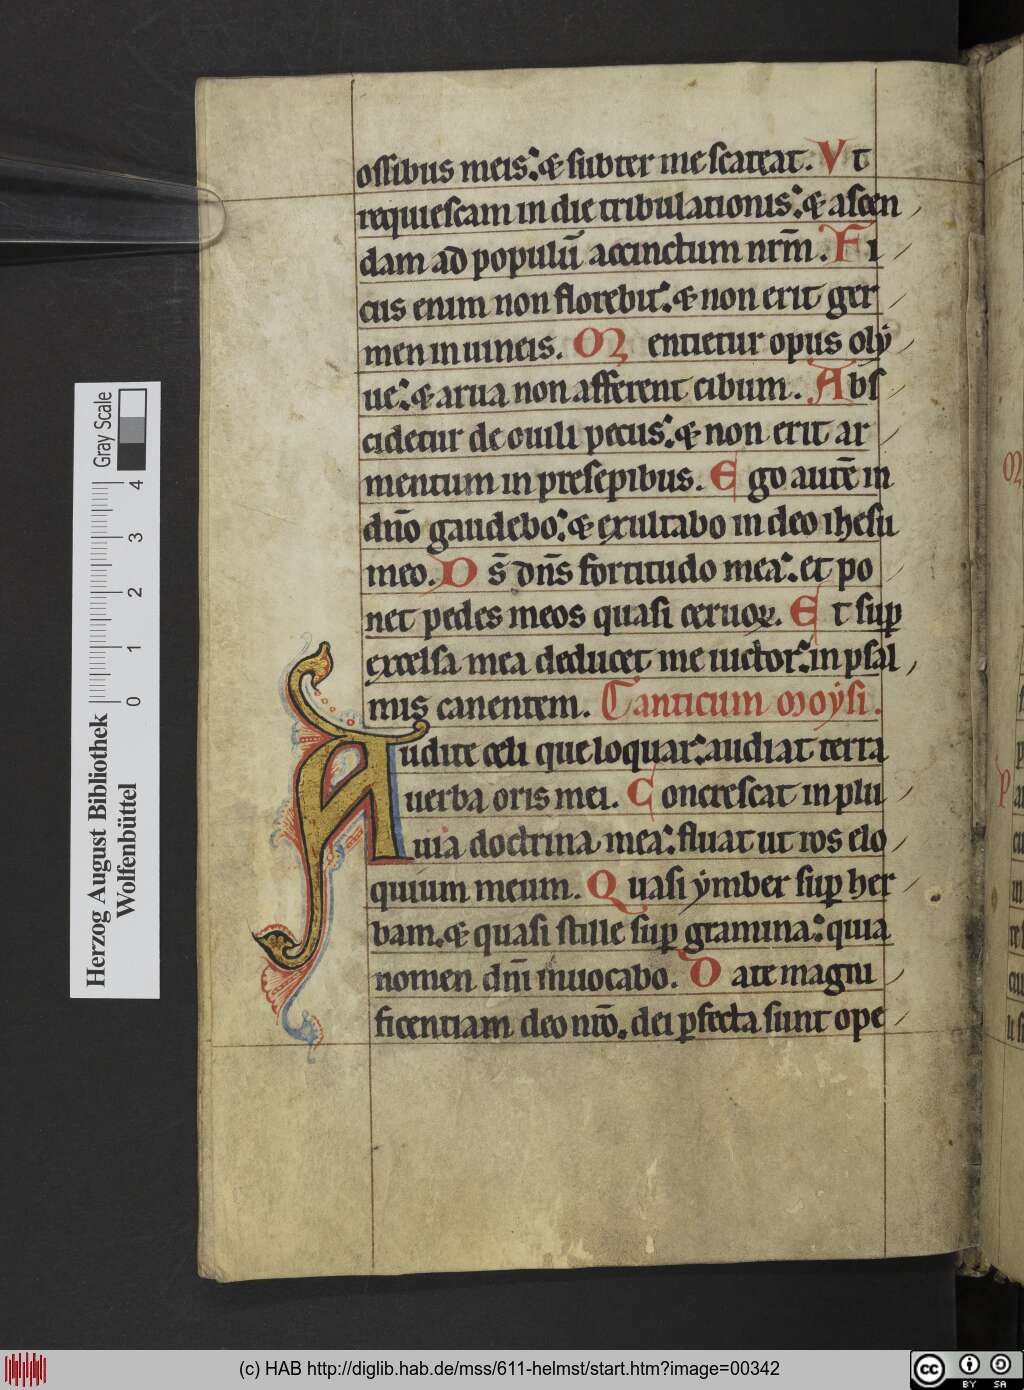 ossibus meis: & subter me scateat. Vt
requiescam in die tribulationis: & ascen
dam ad populū accinctum nrm̄. Fi
cus enim non florebit: & non erit ger
men in uineis. Mentietur opus olẏ
ue: & arua non afferent cibum. Abs
cidetur de ouili pecus: & non erit ar
mentum in presepibus. Ego autē in
dn̄o gaudebo: & exultabo in deo ihesu
meo. Ds̄ dn̄s fortitudo mea: et po
net pedes meos quasi ceruoꝝ. Et suꝑ
excelsa mea deducet me uictor: in psal
mis canentem. Canticum moẏsi.
Audite celi que loquar: audiat terra
uerba oris mei. Concrescat in plu
uia doctrina mea: fluat ut ros elo
quium meum. Quasi ẏmber suꝑ her
bam. & quasi stille suꝑ gramina: quia
nomen dn̄i inuocabo. Date magni
ficentiam deo nr̄o. dei ꝑfecta sunt ope
Herzog August Bibliothek
Wolfenbüttel
Gray Scale
0 1 2 3 4
(c) HAB http://diglib.hab.de/mss/611-helmst/start.htm?image=00342
cc BY SA